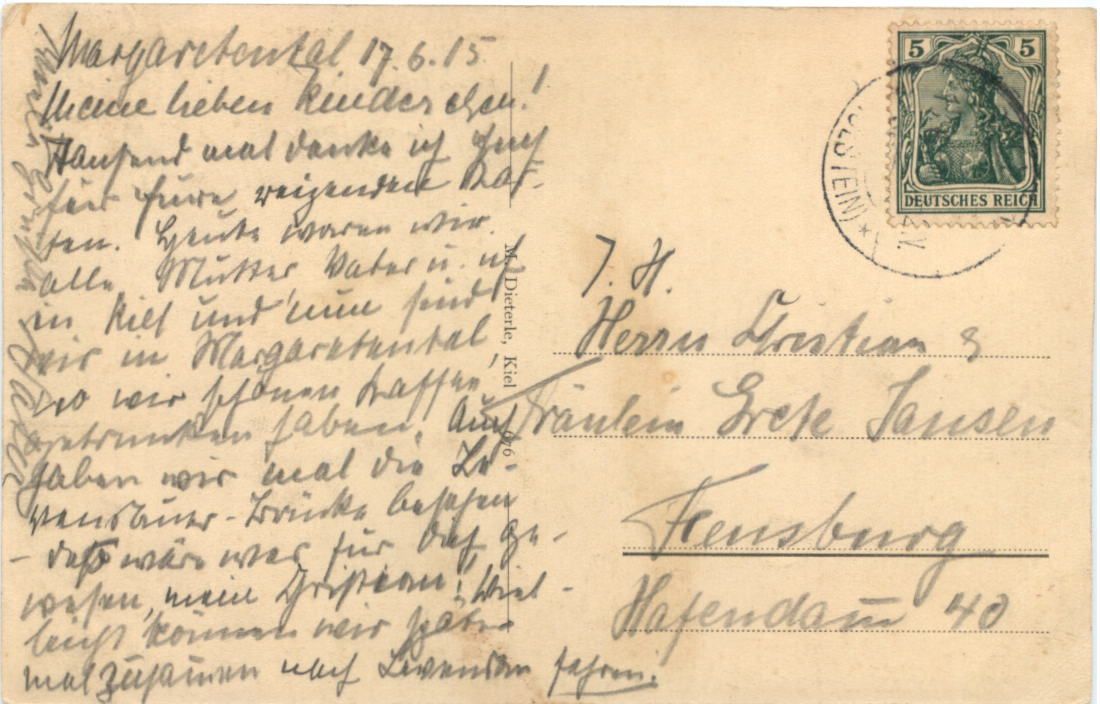 Margaretental 17.6.15
Meine lieben Kinderchen!
Tausend mal danke ich Euch
für Eure reizenden Kar-
ten. Heute waren wir
alle, Mutter, Vater u. ich
in Kiel und nun sind
wir in Margaretental,
wo wir schönen Kaffee
getrunken haben. Auch
haben wir mal die Le-
vensauer-Brücke besehen
- daß wäre was für Dich ge-
wesen, mein Christian! Viel-
leicht können wir später
mal zusamen nach Levensau fahren.
M. Dieterle, Kiel
5 5
DEUTSCHES REICH
LSTEIN) *
J. H.
Herrn Christian &
Fräulein Grete Jansen
Flensburg
Hafendam 40